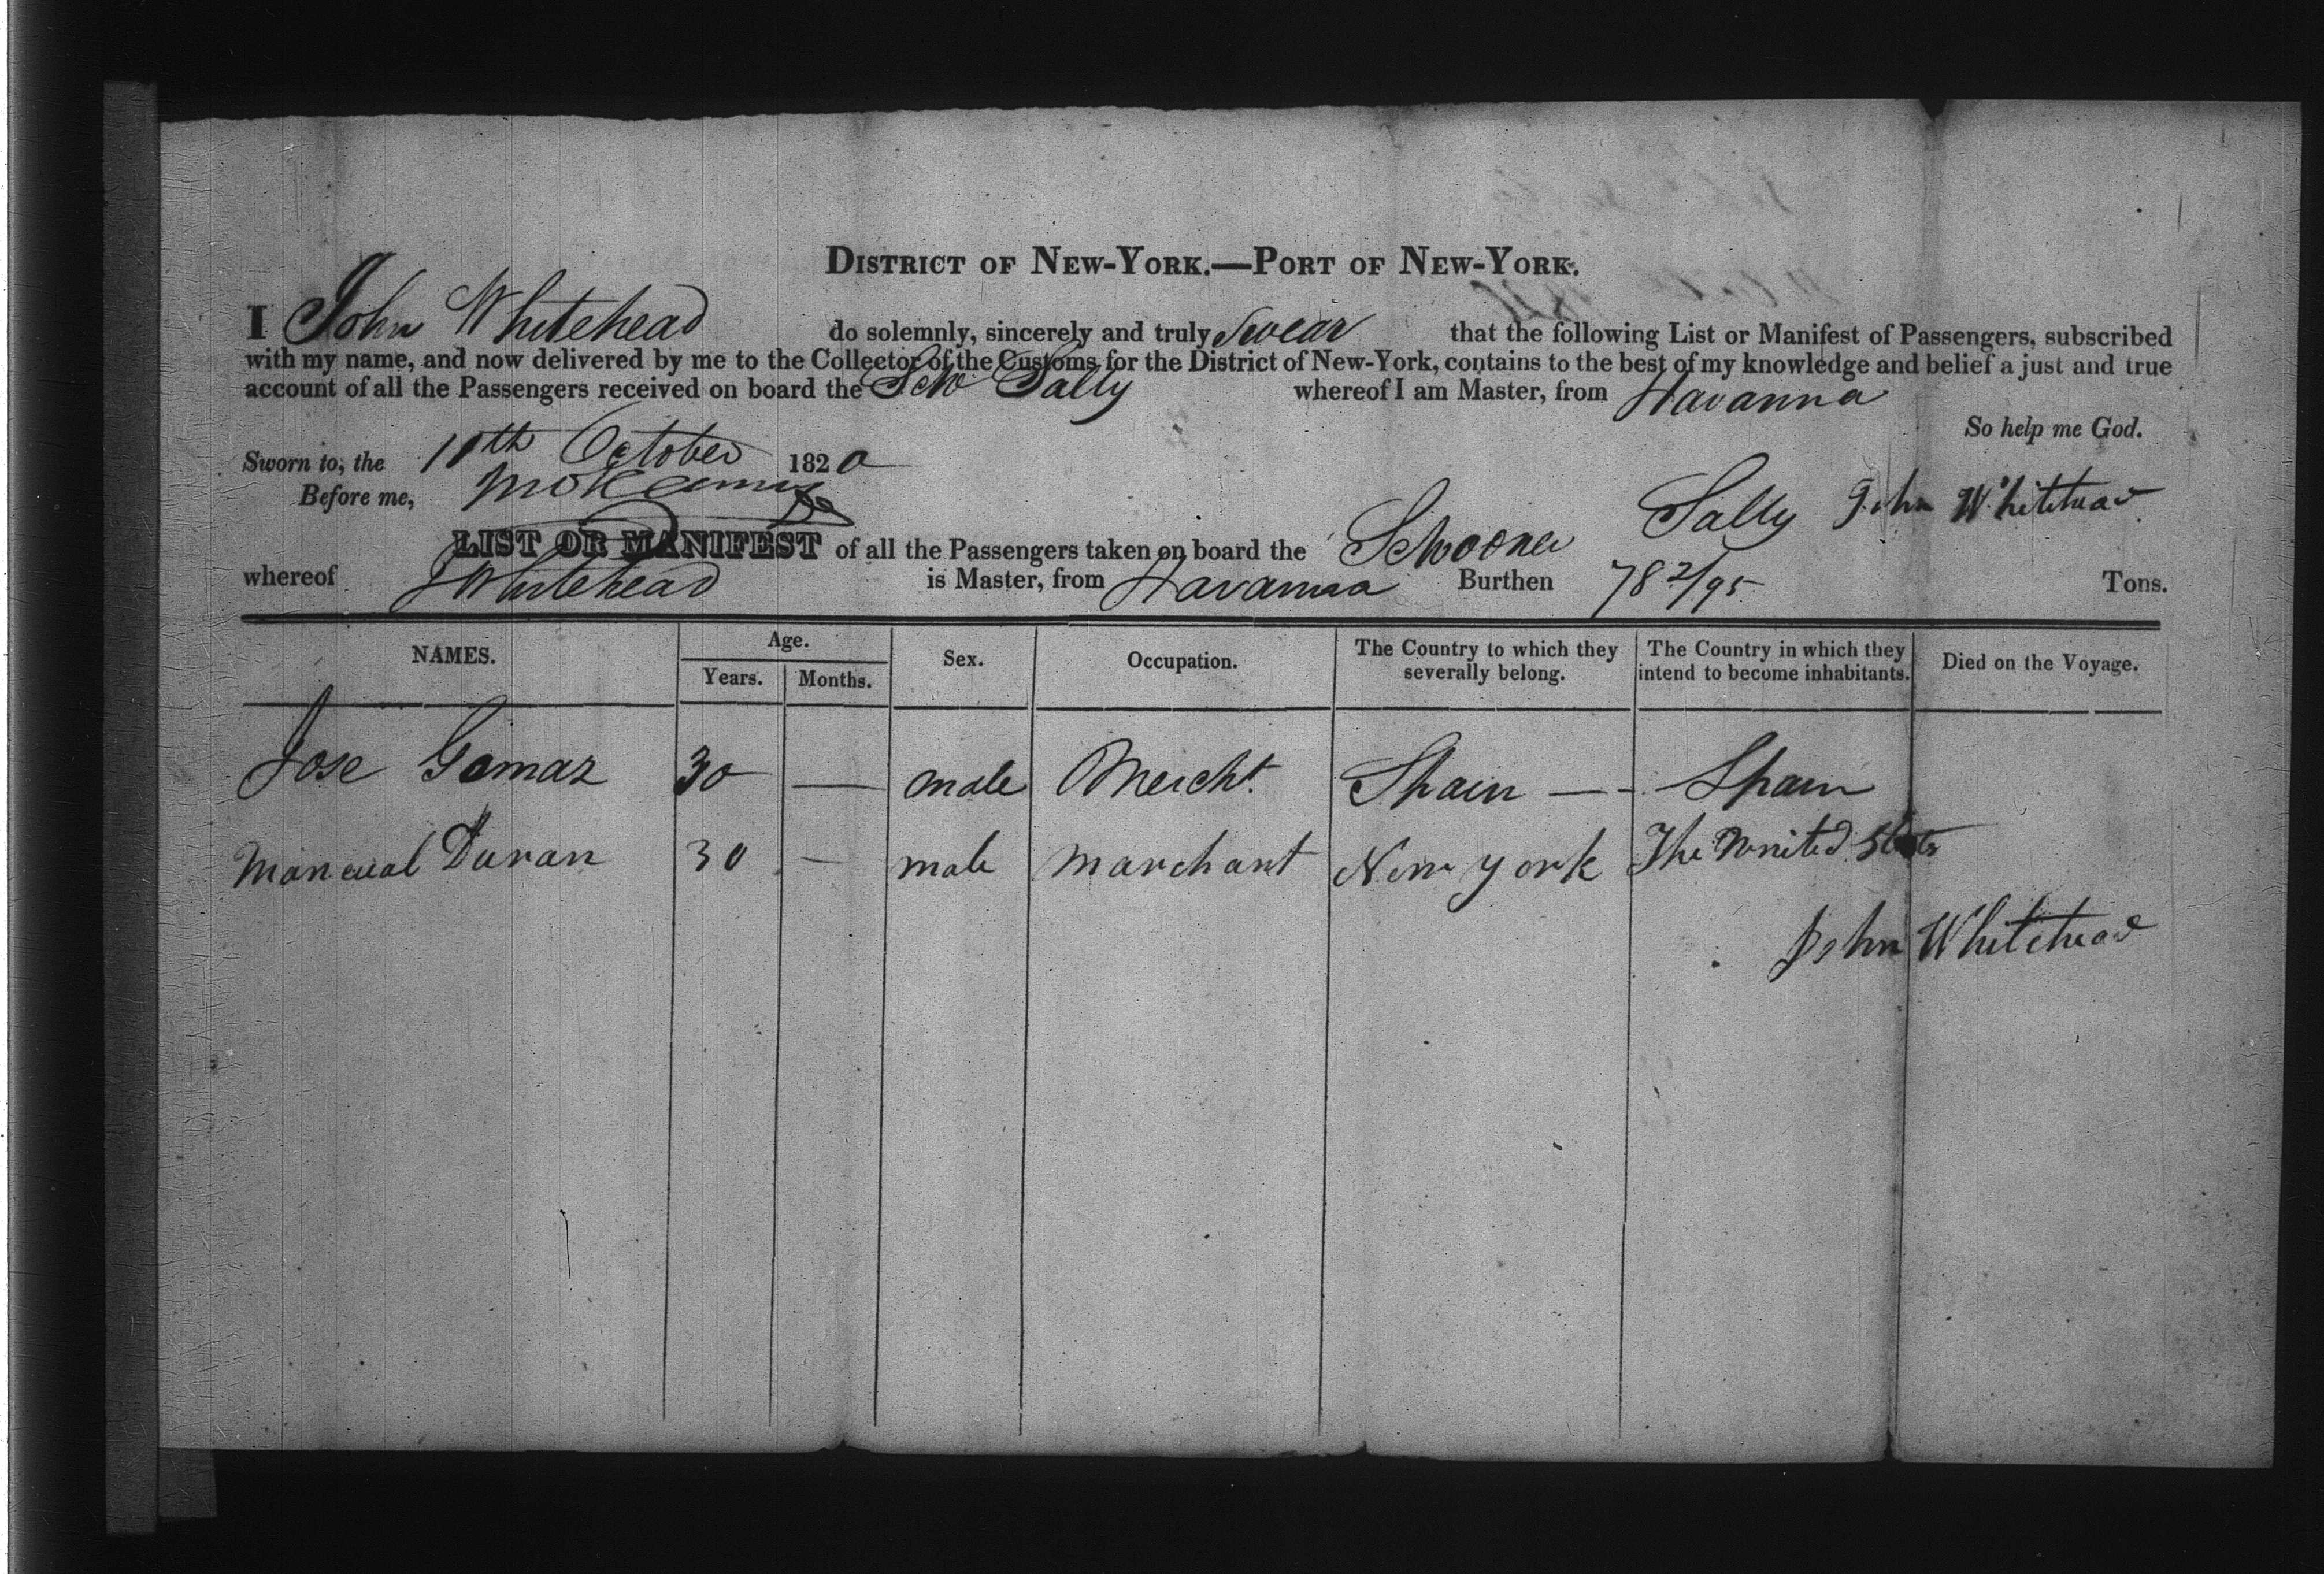 DISTRICT OF NEW-YORK.—PORT OF NEW-YORK.
I John Whitehead do solemnly, sincerely and truly Swear that the following List or Manifest of Passengers, subscribed
with my name, and now delivered by me to the Collector of the Customs for the District of New-York, contains to the best of my knowledge and belief a just and true
account of all the Passengers received on board the Schr Sally whereof I am Master, from Havanna
So help me God.
Sworn to, the 10th October 1820
Before me,
John Whitehead
LIST OR MANIFEST of all the Passengers taken on board the Schooner Sally
whereof J Whitehead is Master, from Havanna Burthen 78 2/95 Tons.
NAMES. Age. Years. Months. Sex. Occupation. The Country to which they severally belong. The Country in which they intend to become inhabitants. Died on the Voyage.
Jose Gomaz 30 — male Mercht. Spain — - - Spain
Mancual Duran 30 — male marchant New york The united States
John Whitehead